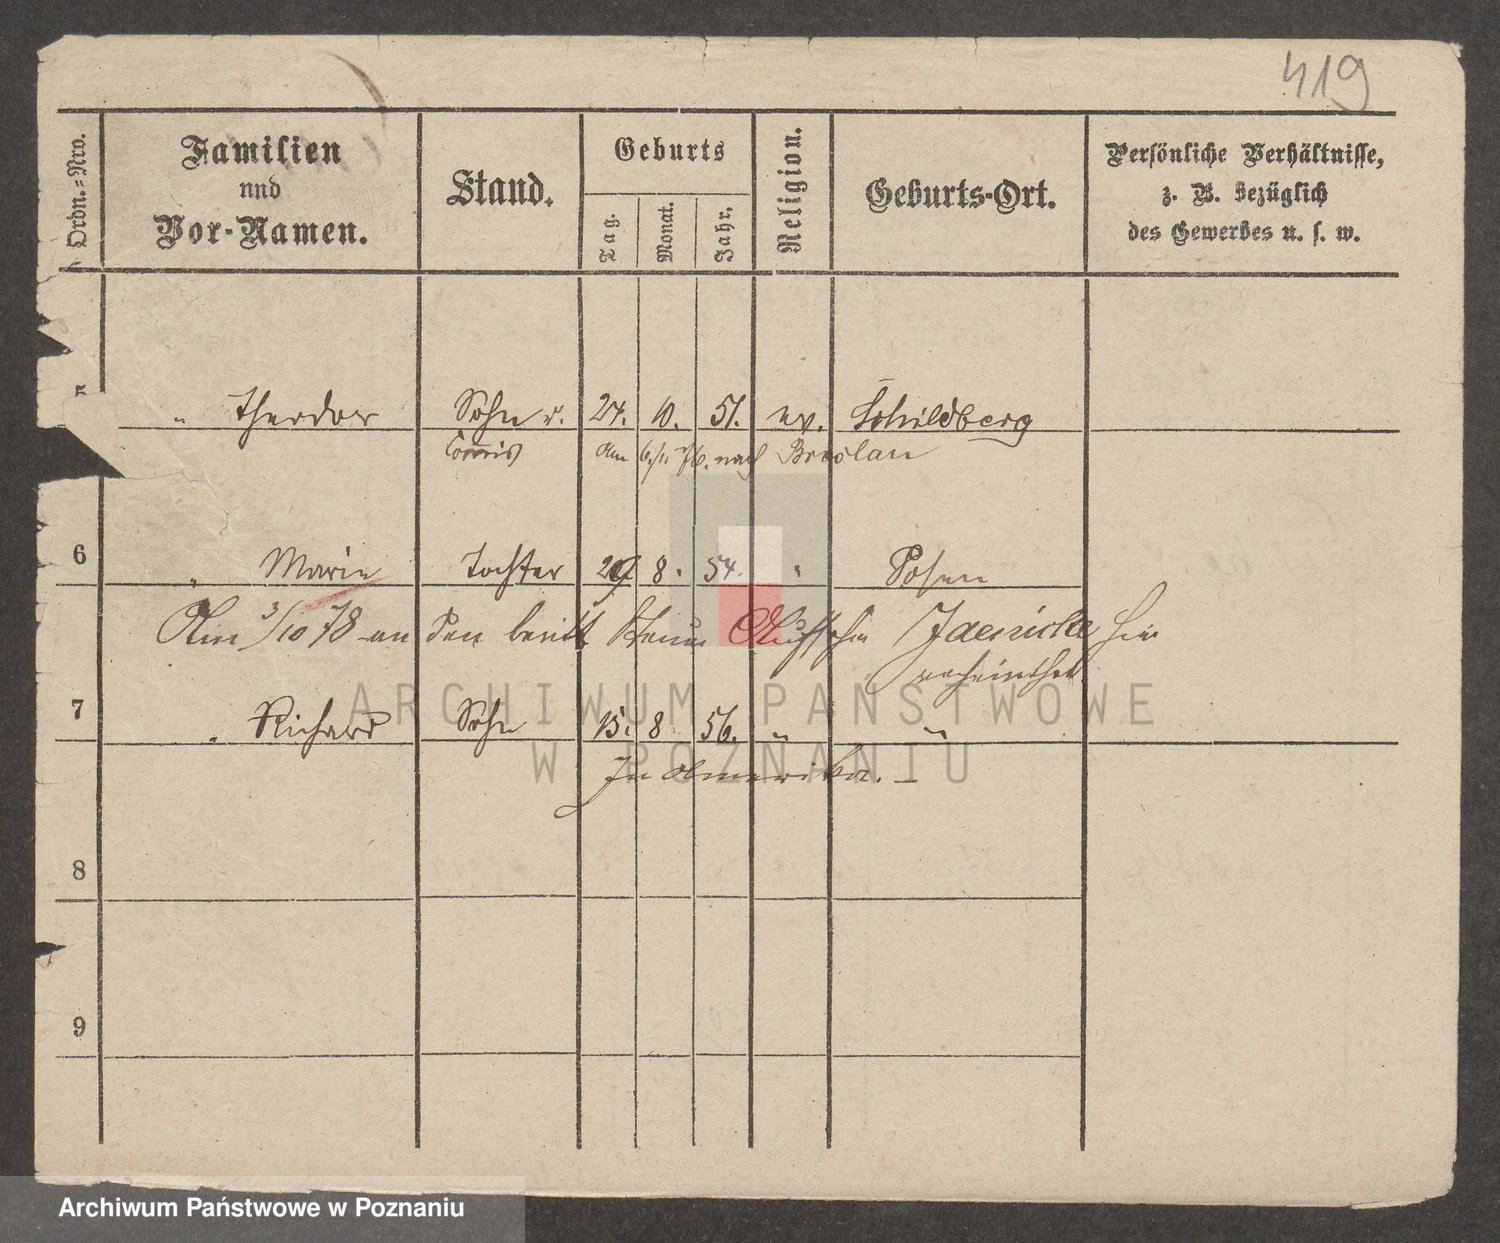 419
Ordn.=Nro.
Familien
und
Vor-Namen.
Stand.
Geburts
Tag.
Monat.
Jahr.
Religion.
Geburts-Ort.
Persönliche Verhältnisse,
z. B. bezüglich
des Gewerbes u. s. w.
" Theodor Sohn 24. 10. 51. ev. Schildberg
Commis Am nach Breslau
6 " Marie Tochter 29 8. 54. " Posen
Am 3/10 78 an den Jaenicke hier
verheirathet
7 " Richard Sohn 15. 8 56. " "
In Amerika. —
8
9
ARCHIWUM PAŃSTWOWE
W POZNANIU
Archiwum Państwowe w Poznaniu